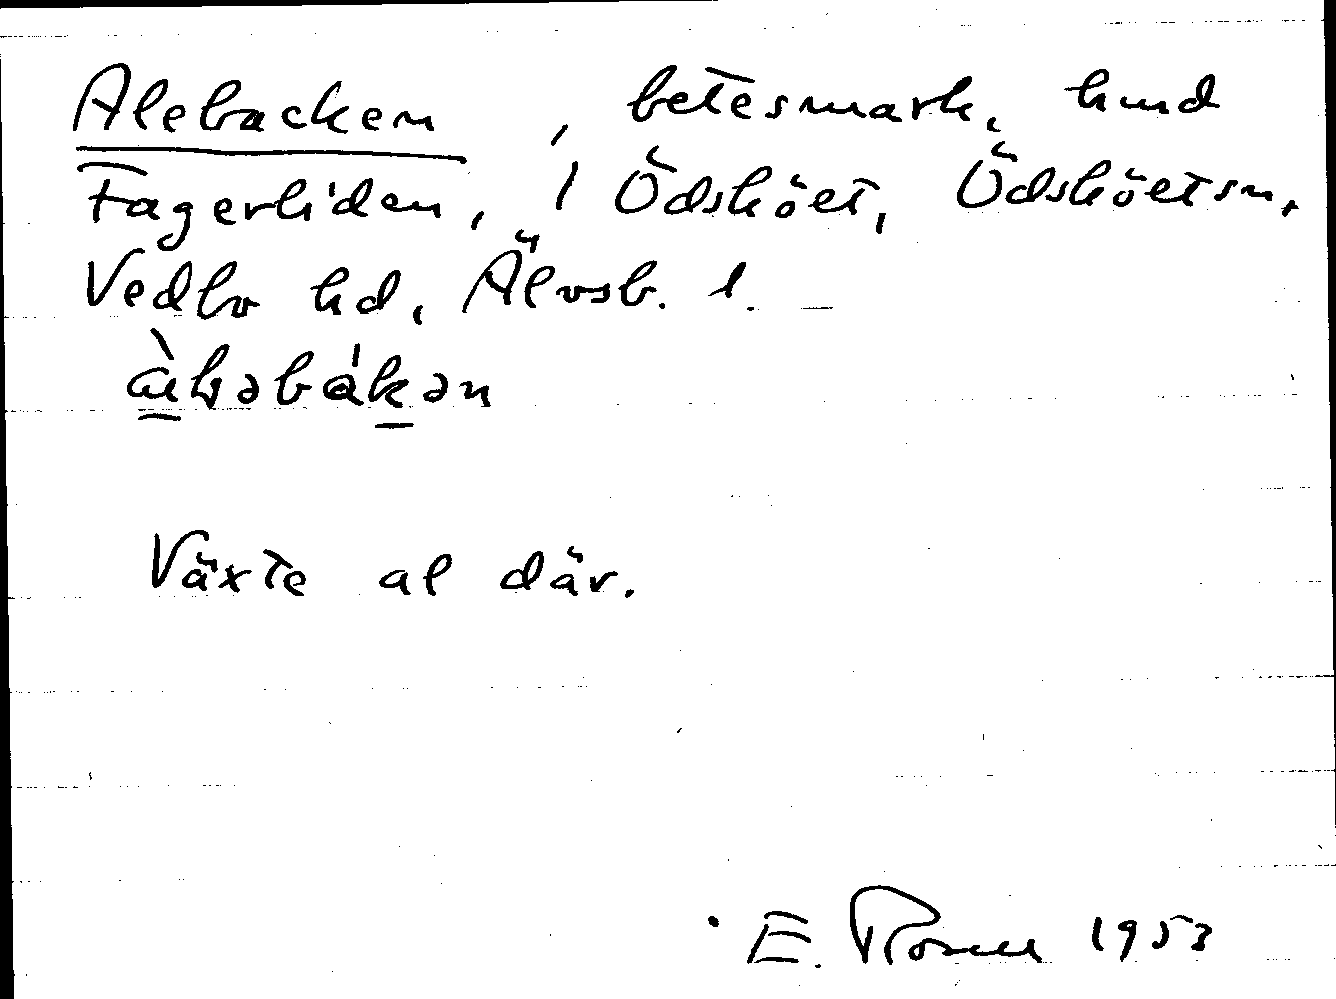 Alebacken, betesmark, hmd
Fagerliden, 1 Ödsköet, Ödsköets sn,
Vedbo hd, Älvsb. l.
Växte al där.
E. Rosell 1953